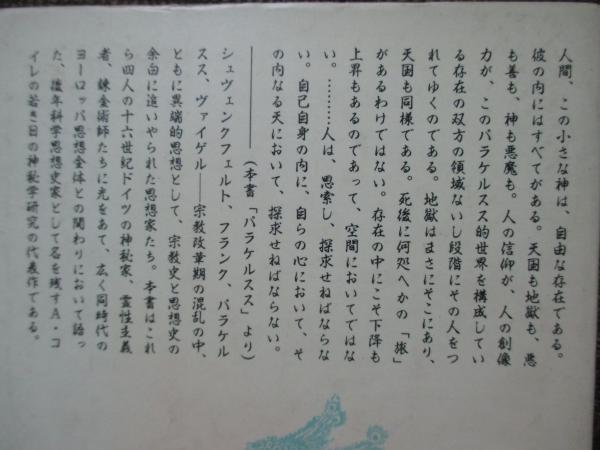 人間、この小さな神は、自由な存在である。
彼の内にはすべてがある。天国も地獄も、悪
も善も、神も悪魔も。人の信仰が、人の創像
力が、このパラケルスス的世界を構成してい
る存在の双方の領域ないし段階にその人をつ
れてゆくのである。地獄はまさにそこにあり、
天国も同様である。死後に何処へかの「旅」
があるわけではない。存在の中にこそ下降も
上昇もあるのであって、空間においてではな
い。…………人は、思索し、探求せねばならな
い。自己自身の内に、自らの心において、そ
の内なる天において、探求せねばならない。
――――――(本書「パラケルスス」より)
シュヴェンクフェルト、フランク、パラケル
スス、ヴァイゲル――宗教改革期の混乱の中、
ともに異端的思想として、宗教史と思想史の
余白に追いやられた思想家たち。本書はこれ
ら四人の十六世紀ドイツの神秘家、霊性主義
者、錬金術師たちに光をあて、広く同時代の
ヨーロッパ思想全体との関わりにおいて語っ
た、後年科学思想史家として名を残すA・コ
イレの若き日の神秘学研究の代表作である。